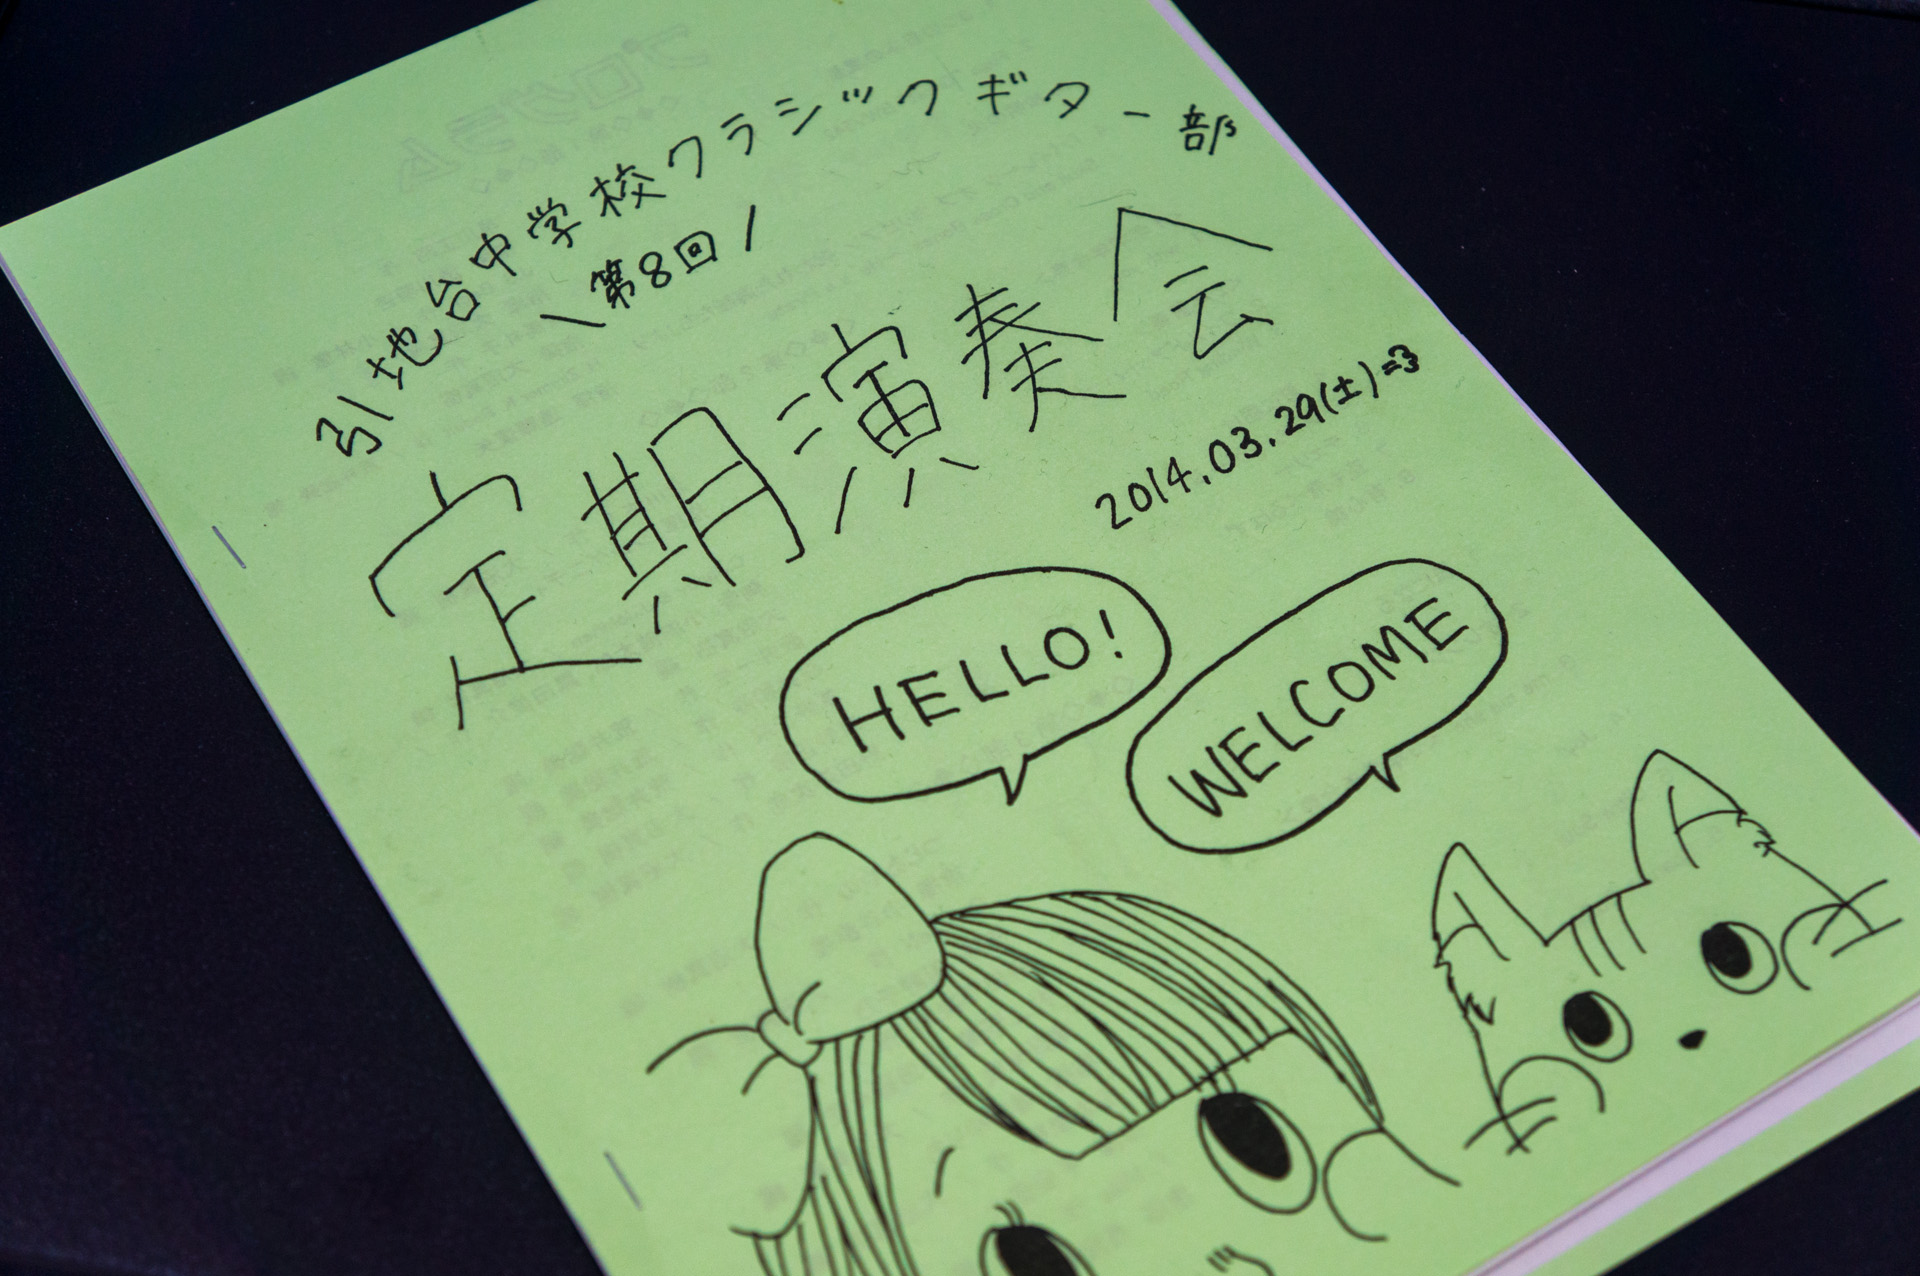 引地台中学校クラシックギター部
\第8回/
定期演奏会
2014.03.29(土)=3
HELLO!
WELCOME
プログラム